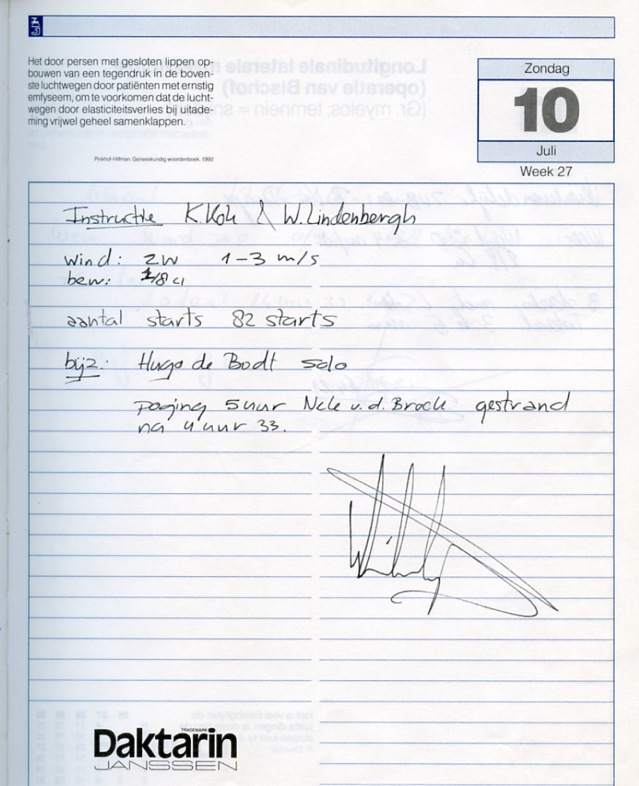 Het door persen met gesloten lippen op-
bouwen van een tegendruk in de boven-
ste luchtwegen door patiënten met ernstig
emfyseem, om te voorkomen dat de lucht-
wegen door elasticiteitsverlies bij uitade-
ming vrijwel geheel samenklappen.
Pinkhof-Hilfman, Geneeskundig woordenboek, 1992
Zondag
10
Juli
Week 27
Instructie K Kok & W. Lindenbergh
wind: ZW 1-3 m/s
bew: 1/8 ci
aantal starts 82 starts
bijz: Hugo de Bodt solo
poging 5 uur Nck v.d. Broek gestrand
na 4 uur 33.
TRADEMARK
Daktarin
JANSSEN